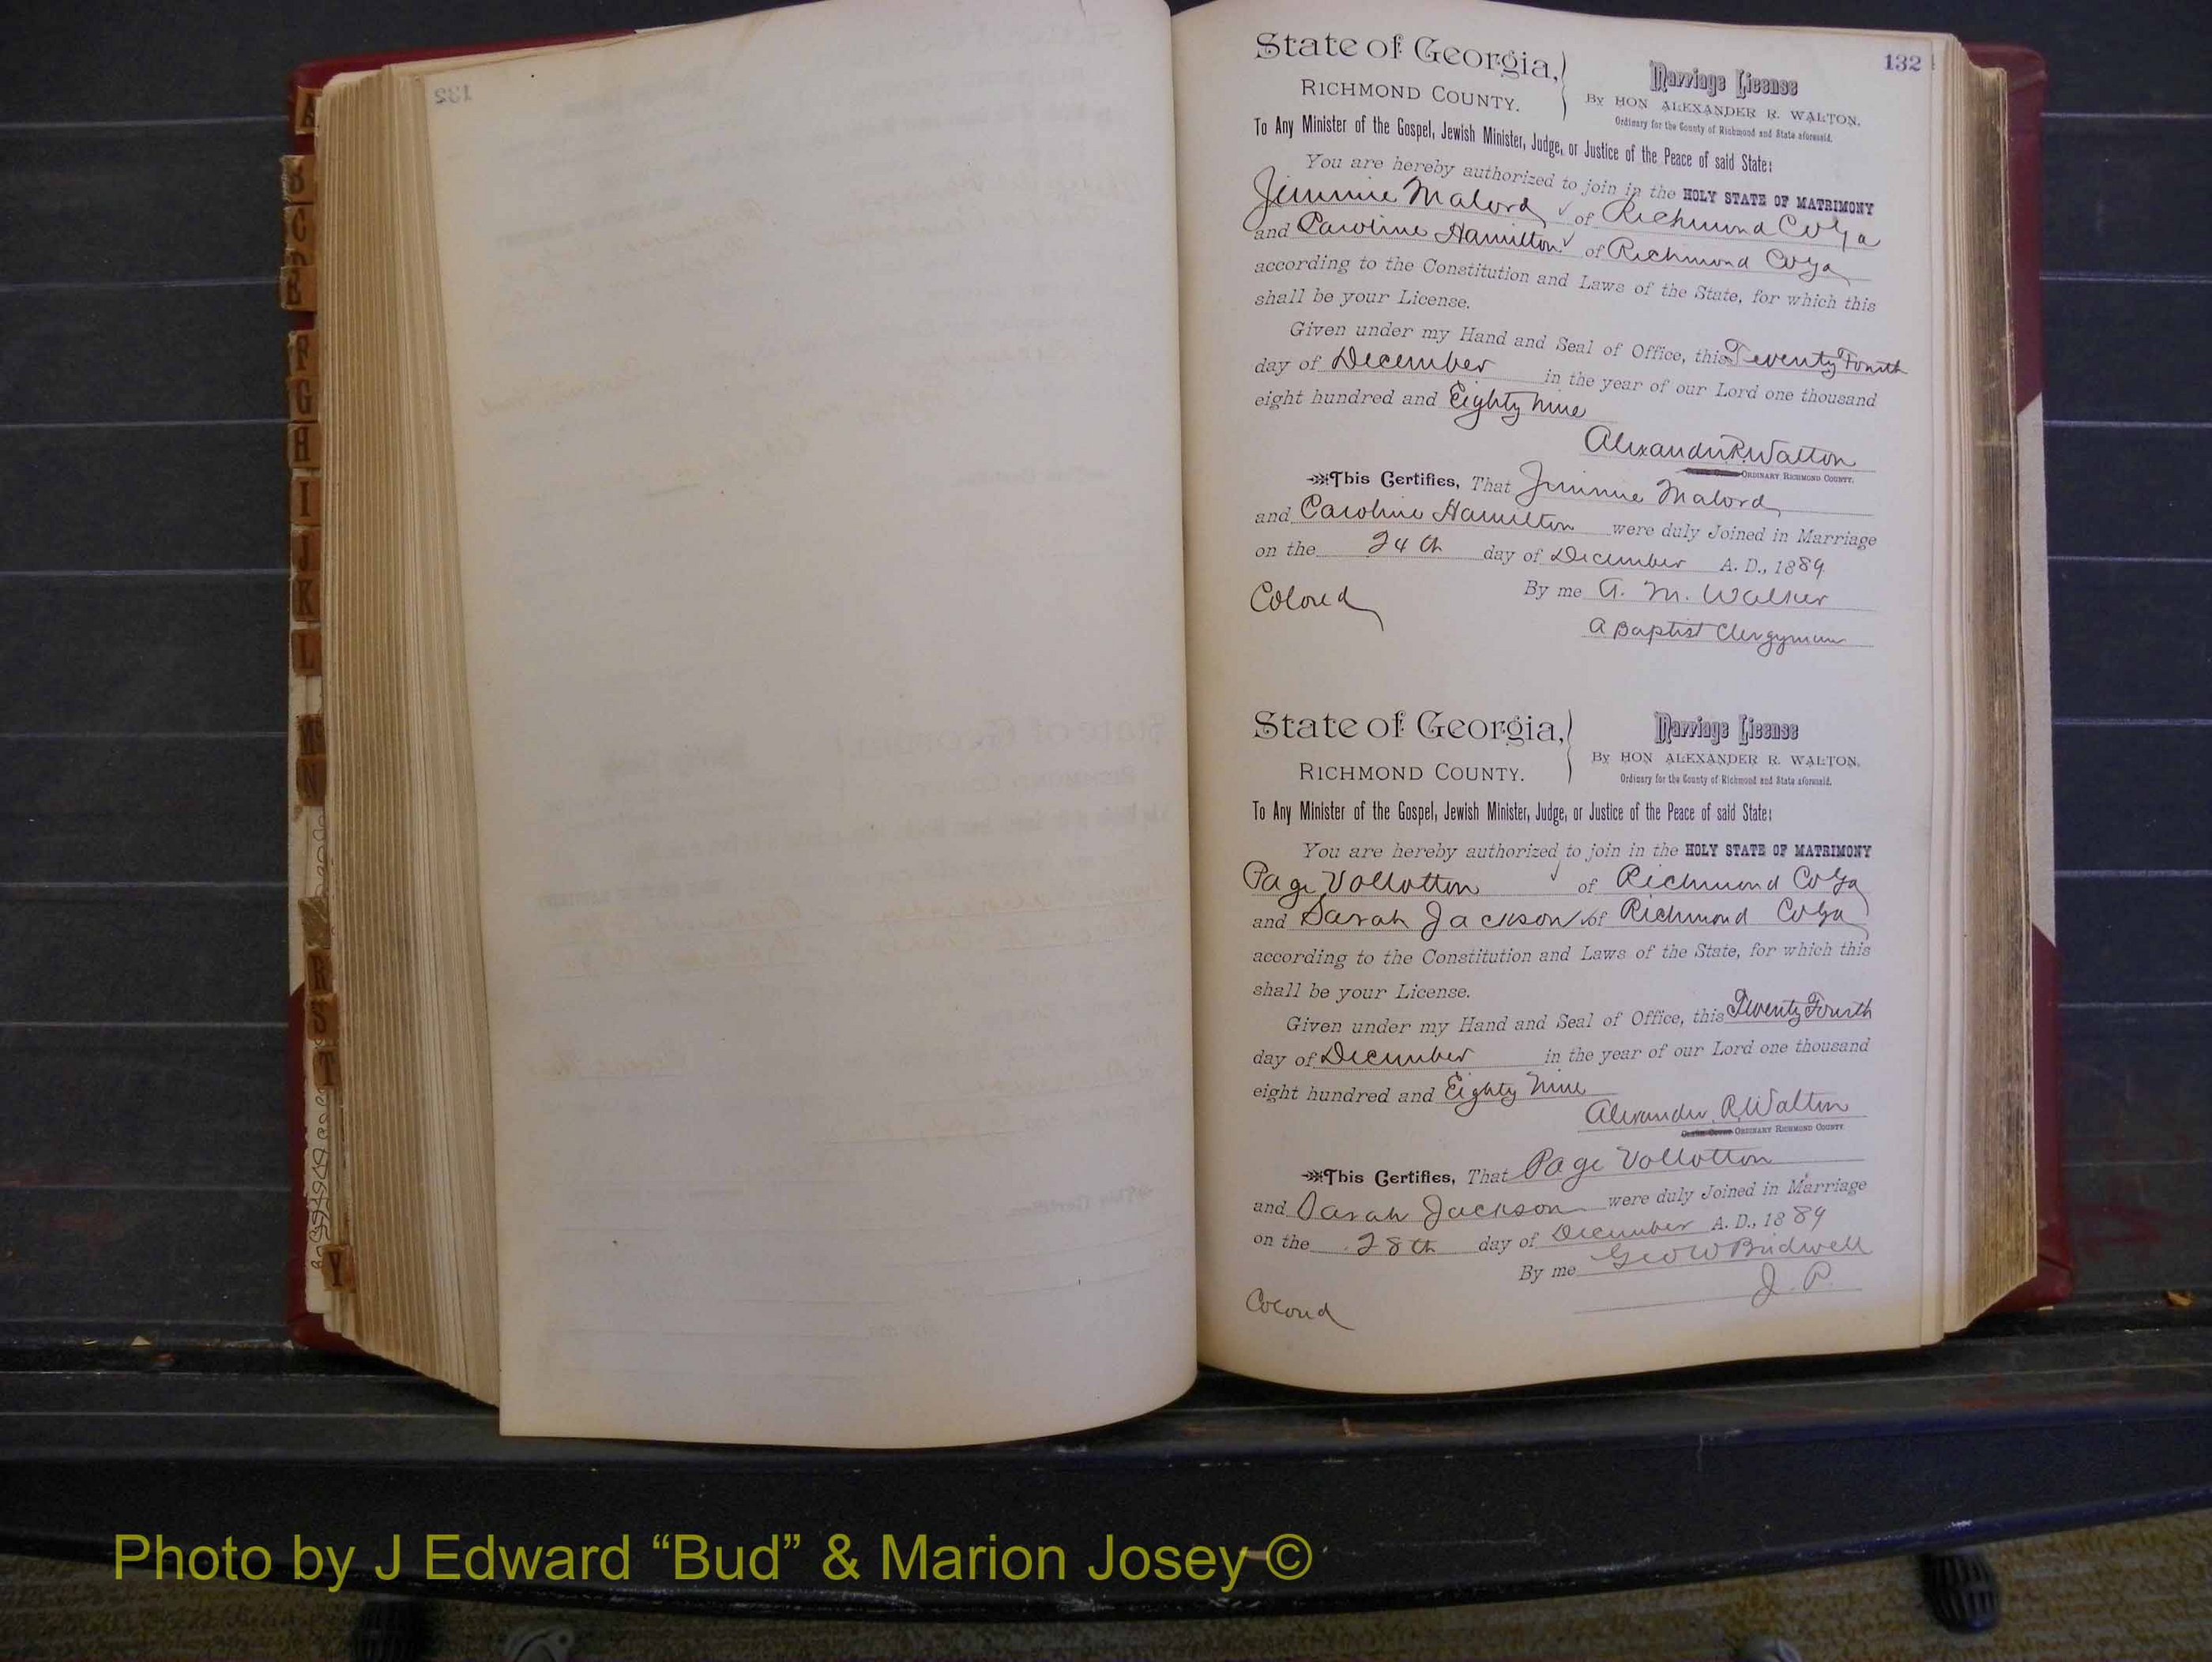 132
State of Georgia,
RICHMOND COUNTY.
Marriage License
By HON ALEXANDER R. WALTON,
Ordinary for the County of Richmond and State aforesaid.
To Any Minister of the Gospel, Jewish Minister, Judge, or Justice of the Peace of said State:
You are hereby authorized to join in the HOLY STATE OF MATRIMONY
Jimmie Malord of Richmond Co Ga
and Caroline Hamilton of Richmond Co Ga
according to the Constitution and Laws of the State, for which this
shall be your License.
Given under my Hand and Seal of Office, this Twenty Fourth
day of December in the year of our Lord one thousand
eight hundred and Eighty Nine
Alexander R. Walton
ORDINARY RICHMOND COUNTY.
This Certifies, That Jimmie Malord
and Caroline Hamilton were duly Joined in Marriage
on the 24th day of December A. D., 1889
By me A. M. Walker
Colored
A Baptist Clergyman
State of Georgia,
RICHMOND COUNTY.
Marriage License
By HON ALEXANDER R. WALTON,
Ordinary for the County of Richmond and State aforesaid.
To Any Minister of the Gospel, Jewish Minister, Judge, or Justice of the Peace of said State:
You are hereby authorized to join in the HOLY STATE OF MATRIMONY
Page Vollotton of Richmond Co Ga
and Sarah Jackson of Richmond Co Ga
according to the Constitution and Laws of the State, for which this
shall be your License.
Given under my Hand and Seal of Office, this Twenty Fourth
day of December in the year of our Lord one thousand
eight hundred and Eighty Nine
Alexander R Walton
ORDINARY RICHMOND COUNTY
This Certifies, That Page Vollotton
and Sarah Jackson were duly Joined in Marriage
on the 28th day of December A. D., 1889
By me Geo W Bridwell
J. P.
Colored
A
B
C
F
G
H
I
J
K
L
Mc
N
R
S
T
Y
Photo by J Edward “Bud” & Marion Josey ©